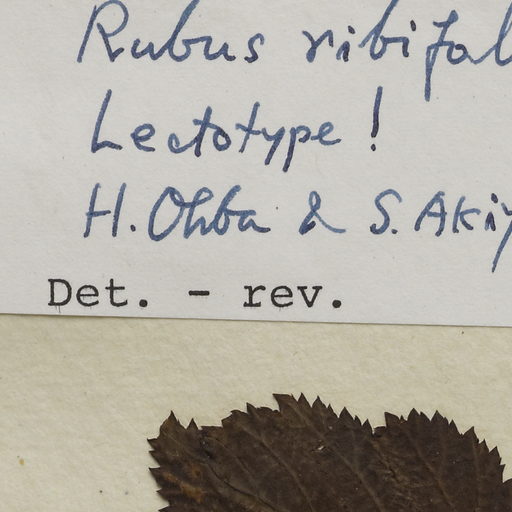 Rubus ribifol
Lectotype!
H. Ohba & S. Akiy
Det. - rev.